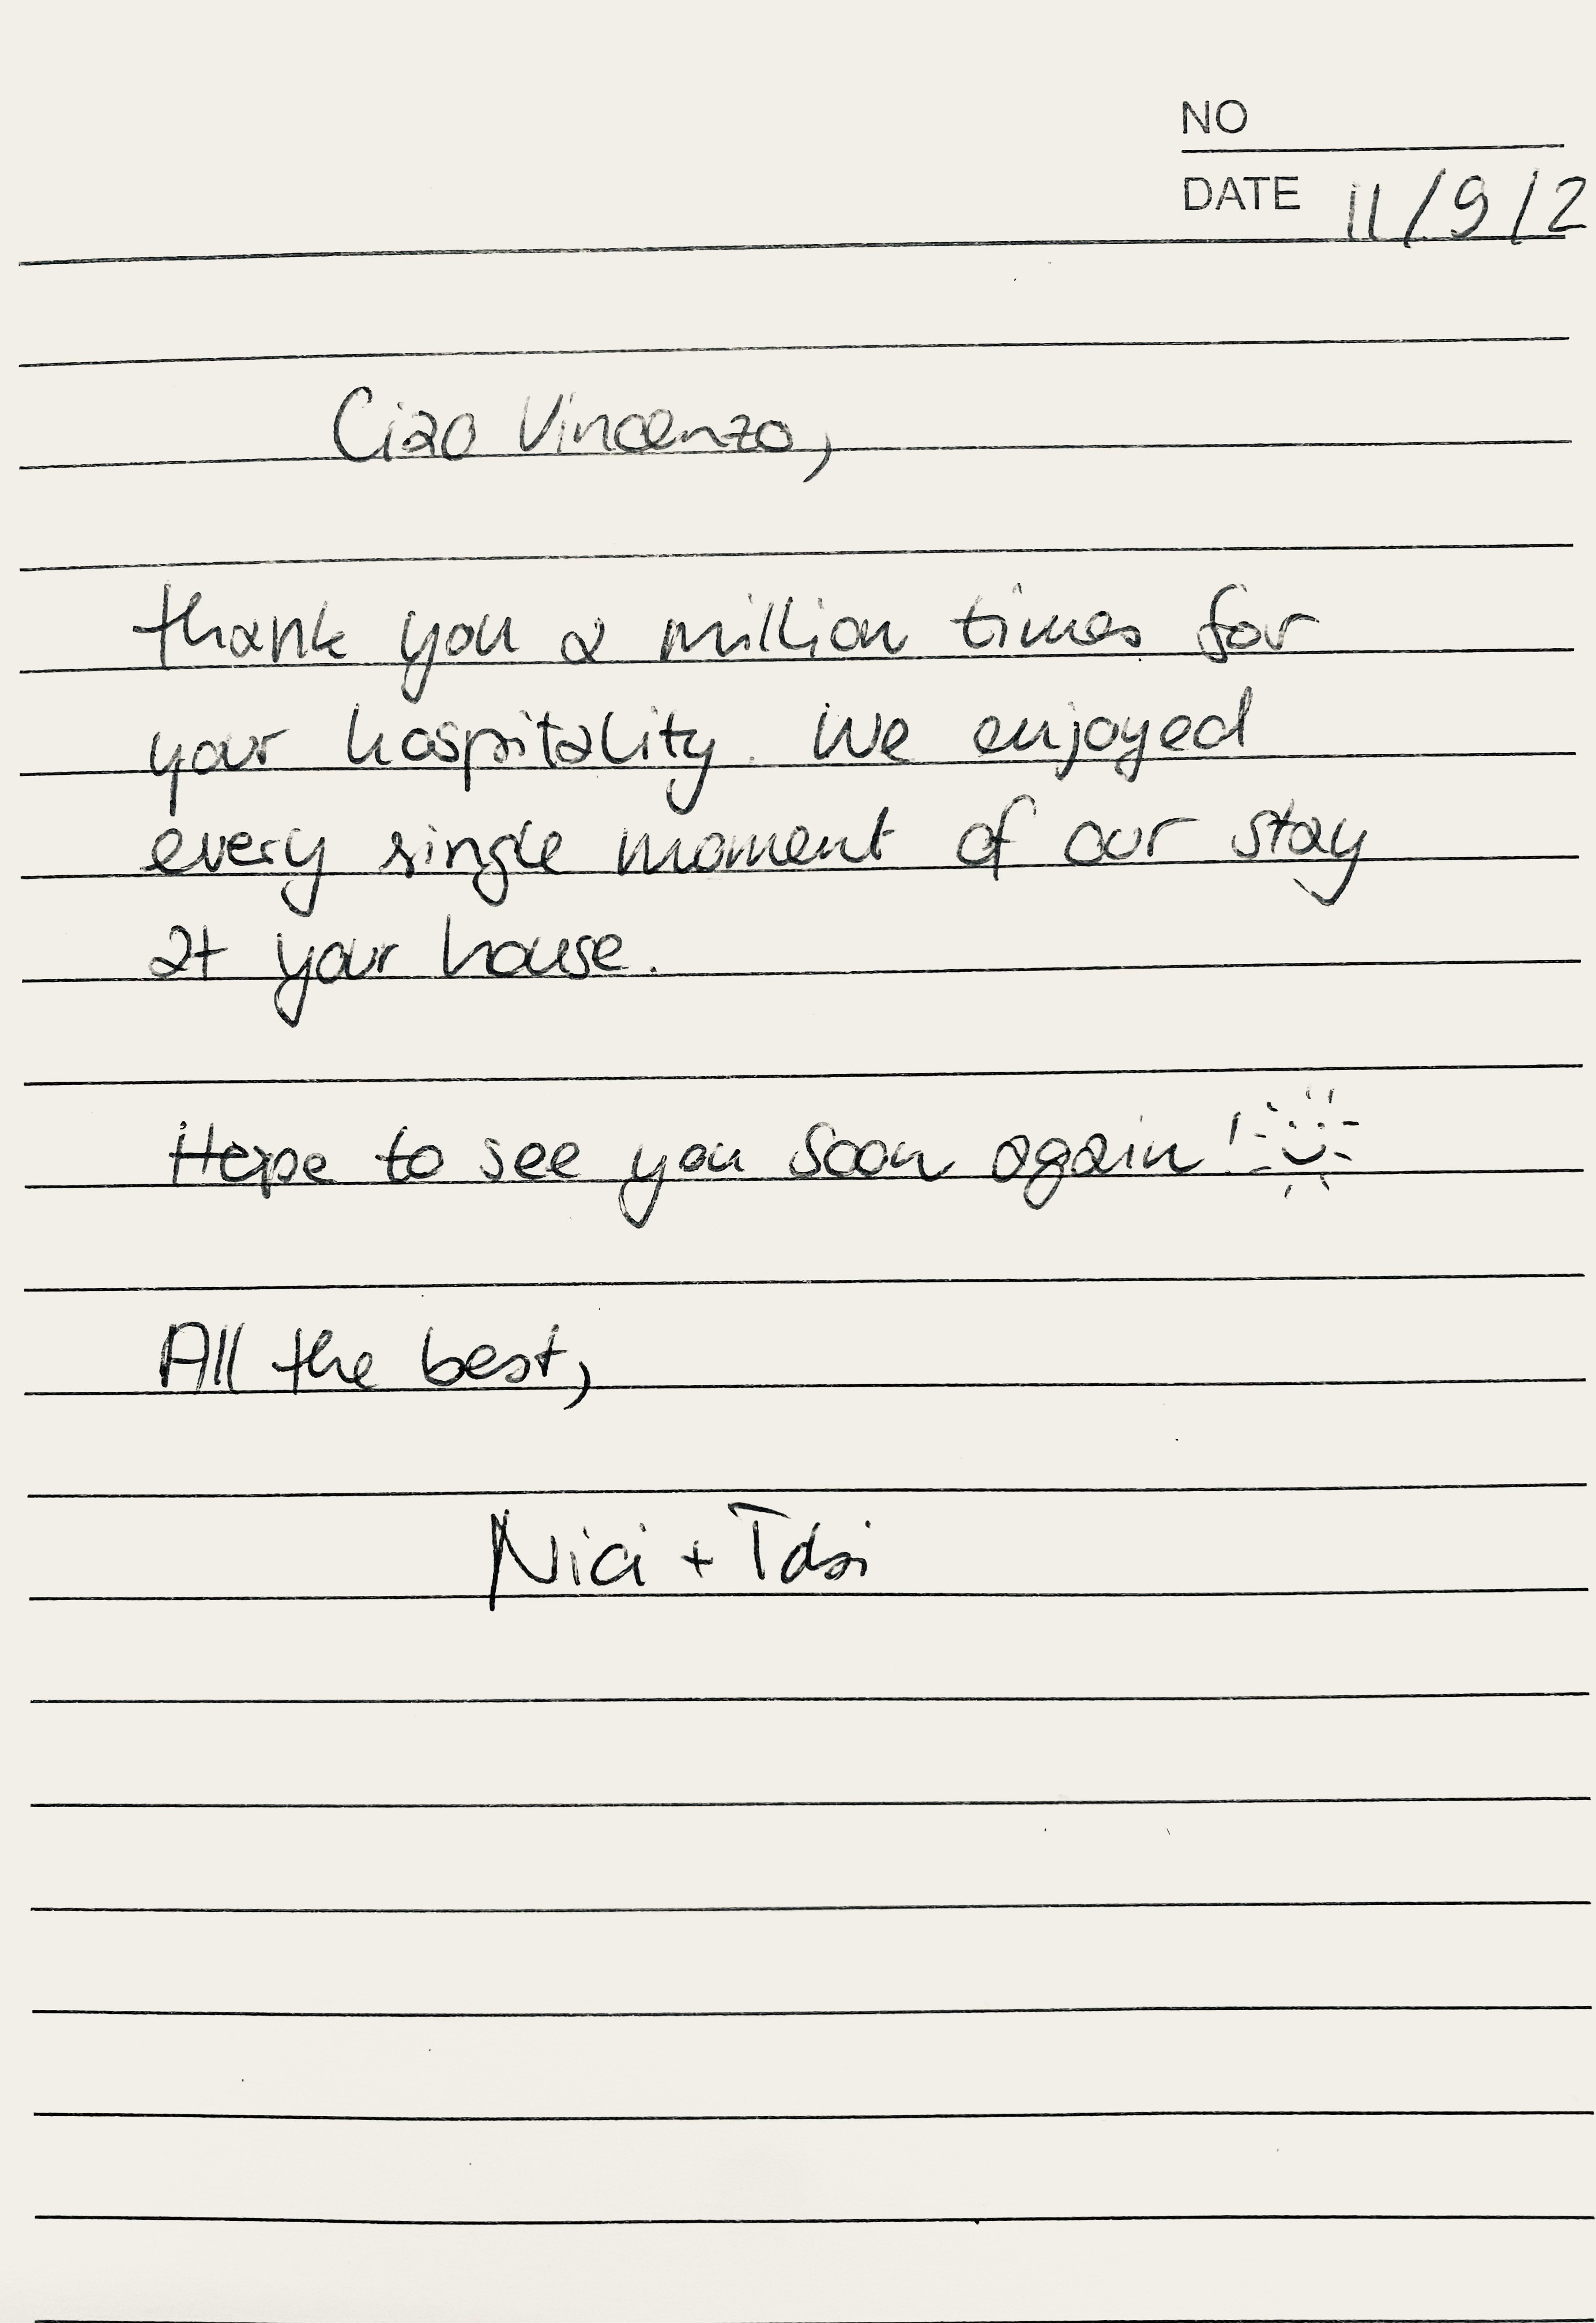 NO
DATE 11/9/2
Ciao Vincenzo,
thank you a million times for
your hospitality. We enjoyed
every single moment of our stay
at your house.
Hope to see you soon again!
All the best,
Nici +